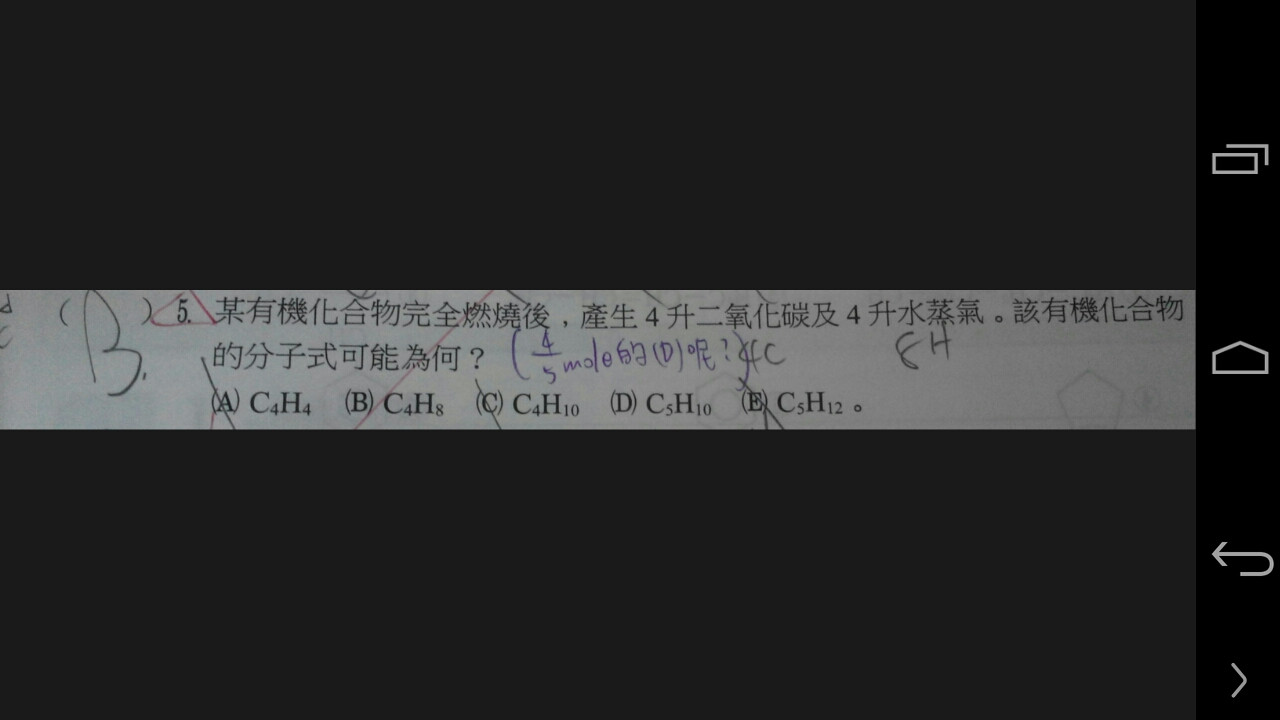 ( B. ) 5. 某有機化合物完全燃燒後，產生 4 升二氧化碳及 4 升水蒸氣。該有機化合物
的分子式可能為何？ ( 4/5 mole的(D)呢？) 4C 8H
(A) C₄H₄ (B) C₄H₈ (C) C₄H₁₀ (D) C₅H₁₀ (E) C₅H₁₂ 。